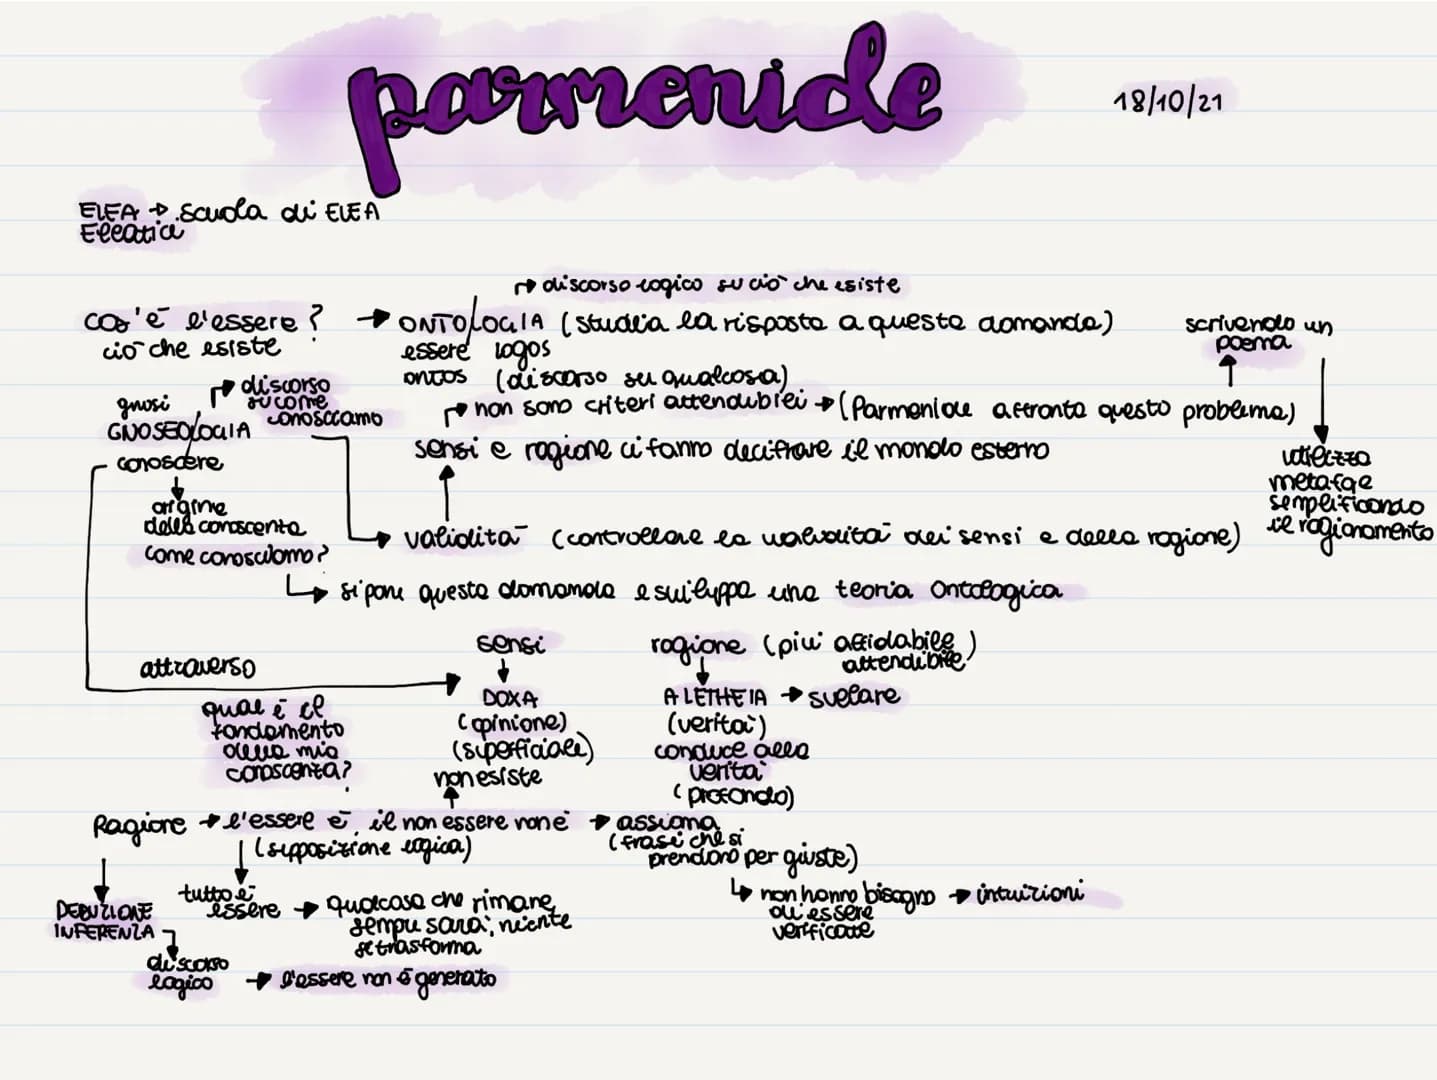 parmenide
18/10/21
ELEA → scuola di ELEA
Eleatica
↱ discorso logico su ciò che esiste
cos'è l'essere? → ONTOLOGIA (studia la risposta a questa domanda)
ciò che esiste
essere logos
ontos (discorso su qualcosa)
scrivendo un
poema
gnosi
↱ discorso
su come
conosciamo
GNOSEOLOGIA
conoscere
↱ non sono criteri attendibili → (Parmenide affronta questo problema)
sensi e ragione ci fanno decifrare il mondo esterno
utilizza
metafore
semplificando
il ragionamento
origine
della conoscenza
come conosciamo?
→ validità (controllare la validità dei sensi e della ragione)
↳ si pone questa domanda e sviluppa una teoria ontologica
attraverso
sensi
DOXA
(opinione)
(superficiale)
non esiste
ragione (più affidabile)
attendibile
ALETHEIA → svelare
(verità)
conduce alla
verità
(profondo)
qual è il
fondamento
della mia
conoscenza?
Ragione → l'essere è, il non essere non è → assioma
(supposizione logica)
(frasi che si
prendono per giuste)
↳ non hanno bisogno → intuizioni
di essere
verificate
tutto è
essere → qualcosa che rimane,
sempre sarà, niente
si trasforma
DEDUZIONE
INFERENZA
discorso
logico → l'essere non è generato